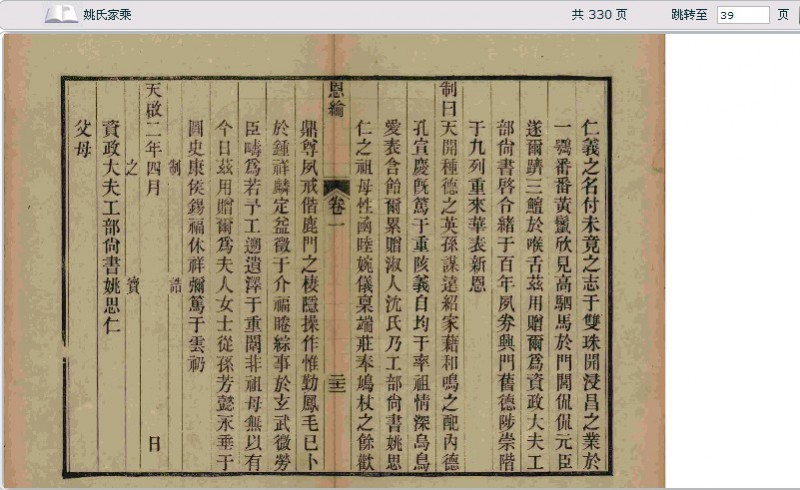 姚氏家乘
共 330 页
跳转至 39 页
仁義之名付未竟之志于雙珠開浸昌之業於
一鶚番番黃鬢欣見高駟馬於門閭侃侃元臣
遂爾躋三鱣於喉舌茲用贈爾爲資政大夫工
部尙書啓合緖于百年夙劵興門舊德陟崇階
于九列重來華表新恩
制曰天開種德之英孫謀遠紹家藉和鳴之配內德
孔宣慶旣篤于重陔義自均于率祖情深烏鳥
愛表含飴爾累贈淑人沈氏乃工部尙書姚思
仁之祖母性函睦婉儀稟端莊奉鳩杖之餘歡
恩綸
卷一
二十三
鼎尊夙戒偕鹿門之棲隱操作惟勤鳳毛已卜
於鍾祥麟定益徵于介福睠綜事於玄武微勞
臣疇爲若予工遡遺澤于重闈非祖母無以有
今日茲用贈爾爲夫人女士從孫芳懿永垂于
圖史康侯錫福休祥彌篤于雲礽
制誥
天啟二年四月 日
之寶
資政大夫工部尙書姚思仁
父母